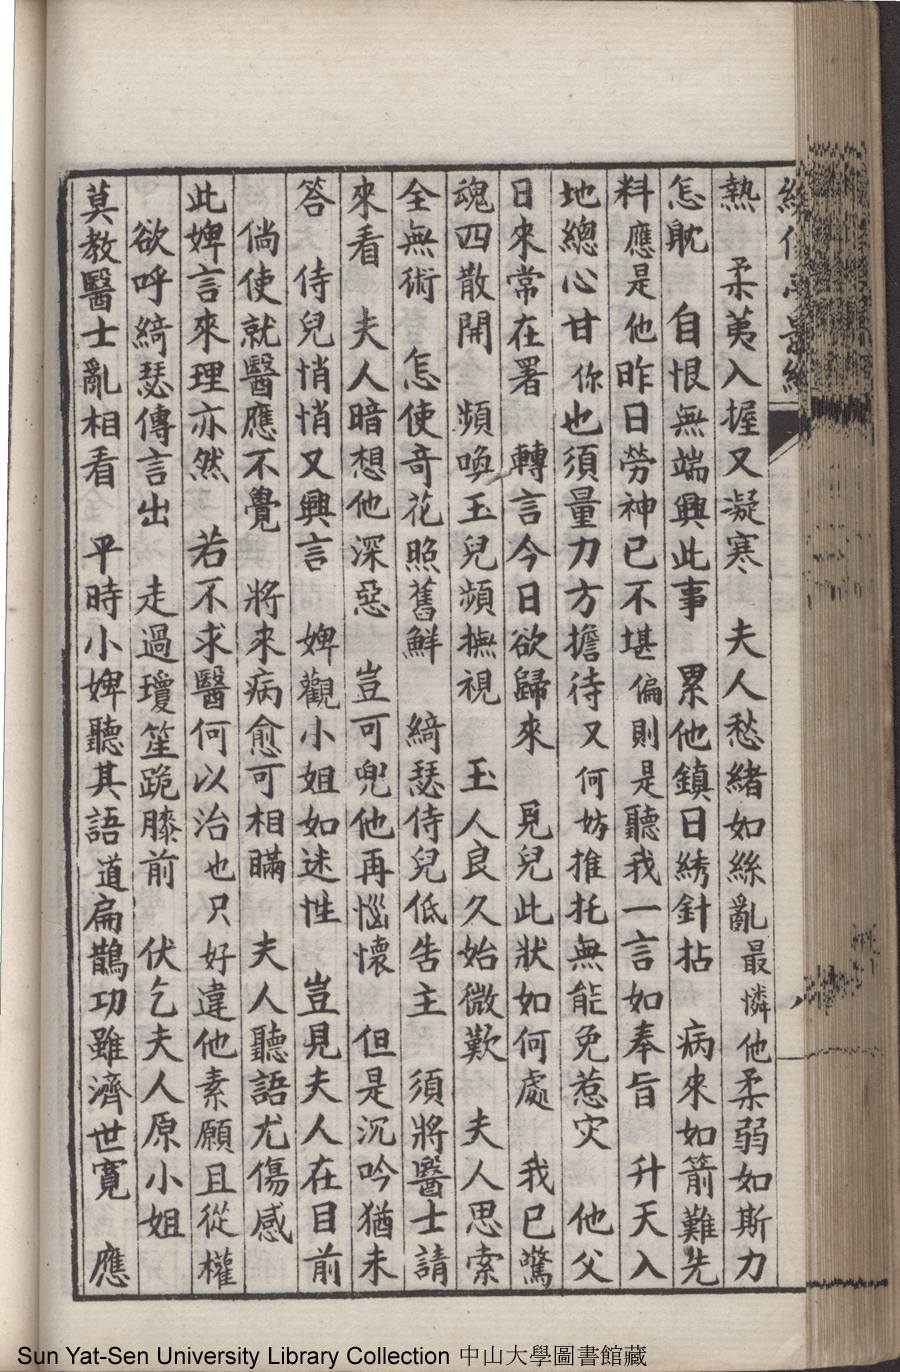 熱　柔荑入握又凝寒　夫人愁緒如絲亂最憐他柔弱如斯力
怎躭　自恨無端興此事　累他鎮日綉針拈　病來如箭難先
料應是他昨日勞神已不堪偏則是聽我一言如奉旨　升天入
地總心甘你也須量力方擔待又何妨推托無能免惹灾　他父
日來常在署　轉言今日欲歸來　見兒此狀如何處　我已驚
魂四散開　頻喚玉兒頻撫視　玉人良久始微歎　夫人思索
全無術　怎使奇花照舊鮮　綺瑟侍兒低告主　須將醫士請
來看　夫人暗想他深惡　豈可兜他再惱懷　但是沉吟猶未
答　侍兒悄悄又興言　婢觀小姐如迷性　豈見夫人在目前
倘使就醫應不覺　將來病愈可相瞞　夫人聽語尤傷感
此婢言來理亦然　若不求醫何以治也只好違他素願且從權
欲呼綺瑟傳言出　走過瓊笙跪膝前　伏乞夫人原小姐
莫教醫士亂相看　平時小婢聽其語道扁鵲功雖濟世寬　應
Sun Yat-Sen University Library Collection 中山大學圖書館藏